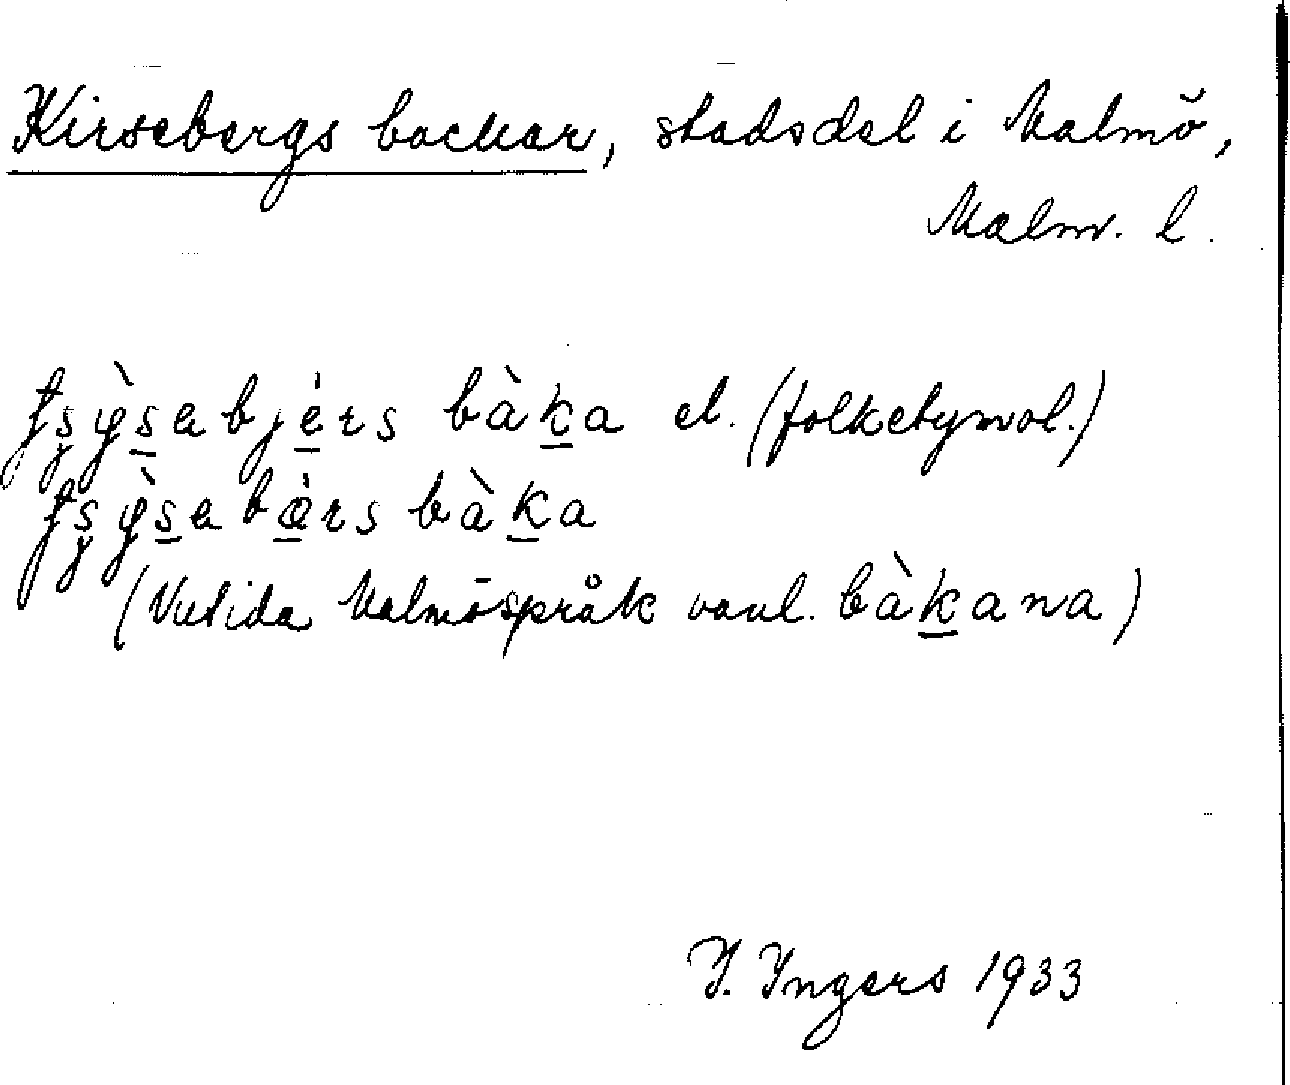 Kirsebergs backar, stadsdel i Malmö,
Malm. l.
bjérs bàka el. (folketymol.)
bàka
(Nutida Malmöspråk vanl. bàkana)
I. Ingers 1933